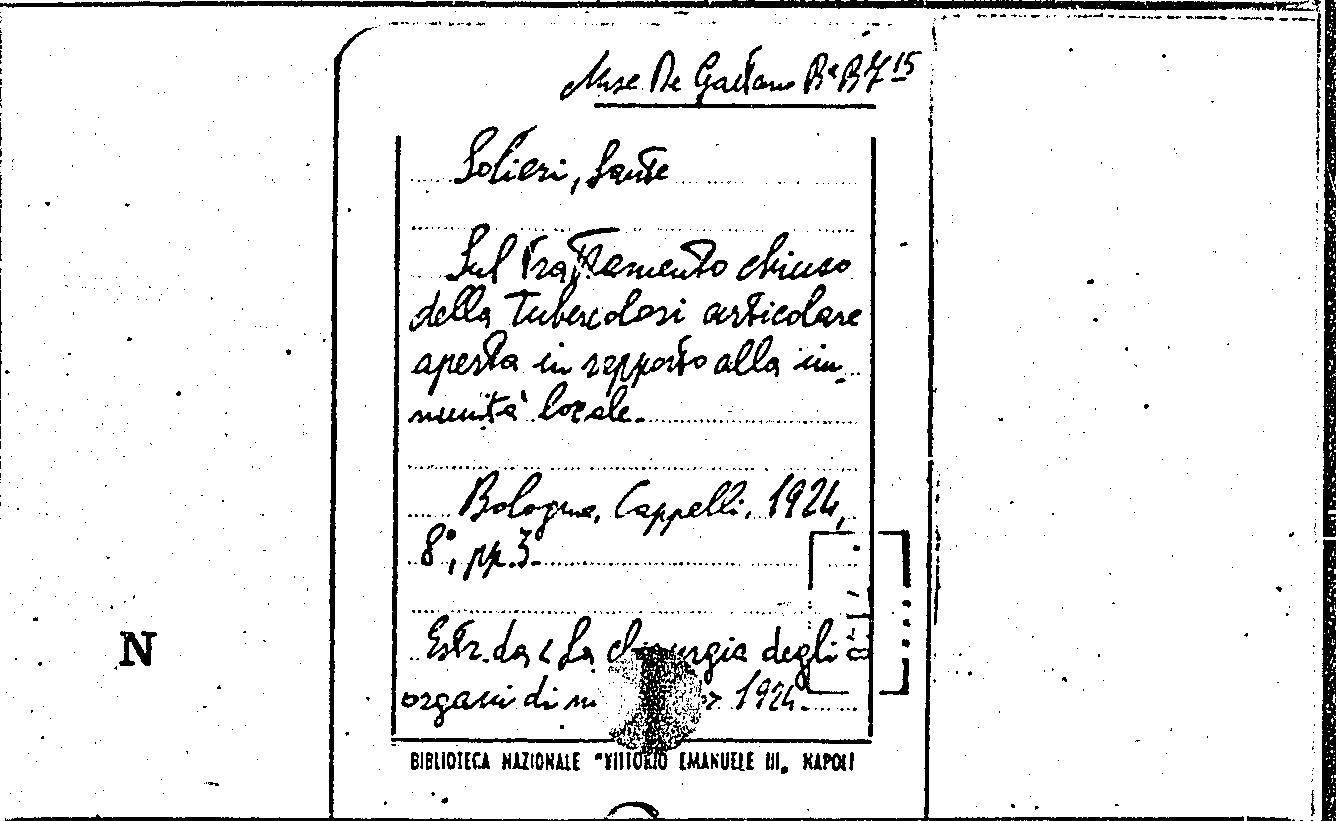 Misc De Gaetano Bª B 7 15
Solieri, Sante
Sul trattamento chiuso
della tubercolosi articolare
aperta in rapporto alla im-
munità locale.
Bologna, Cappelli, 1924,
8°, pp. 3.
Estr. da « La chirurgia degli
organi di m » 1924.
N
BIBLIOTECA NAZIONALE "VITTORIO EMANUELE III„ NAPOLI